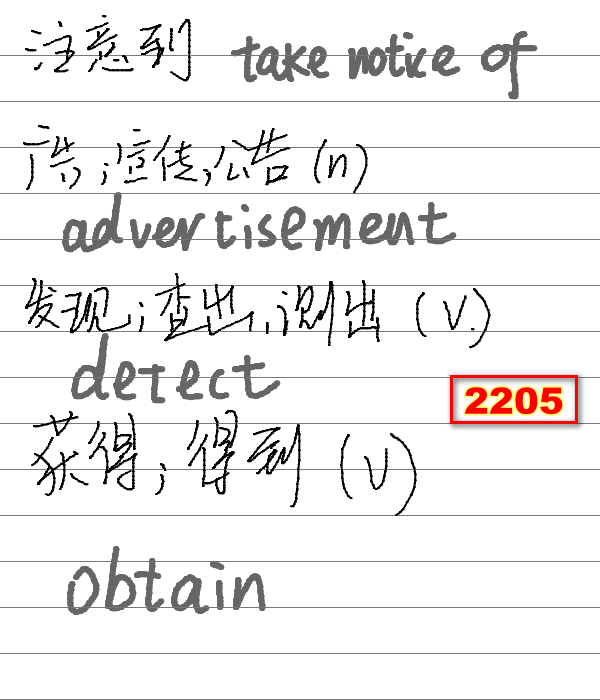 注意到 take notice of
广告;宣传;公告(n)
advertisement
发现;查出,测出(v.)
detect
2205
获得;得到(v)
obtain